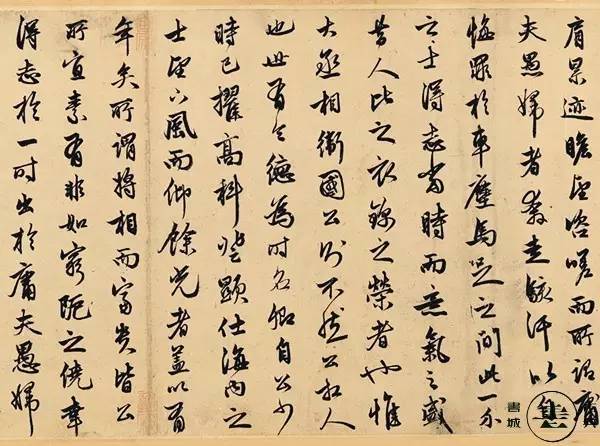 肩累迹瞻望咨嗟而所謂庸
夫愚婦者奔走駭汗以自
悔罪於車塵馬足之間此一介
之士得志當時而意氣之盛
昔人比之衣錦之榮者也惟
大丞相衛國公則不然公相人
也世有令德為時名卿自公少
時已擢高科登顯仕海內之
士望下風而仰餘光者蓋以有
年矣所謂將相而富貴皆公
所宜素有非如窮阨之僥幸
得志於一時出於庸夫愚婦
書城